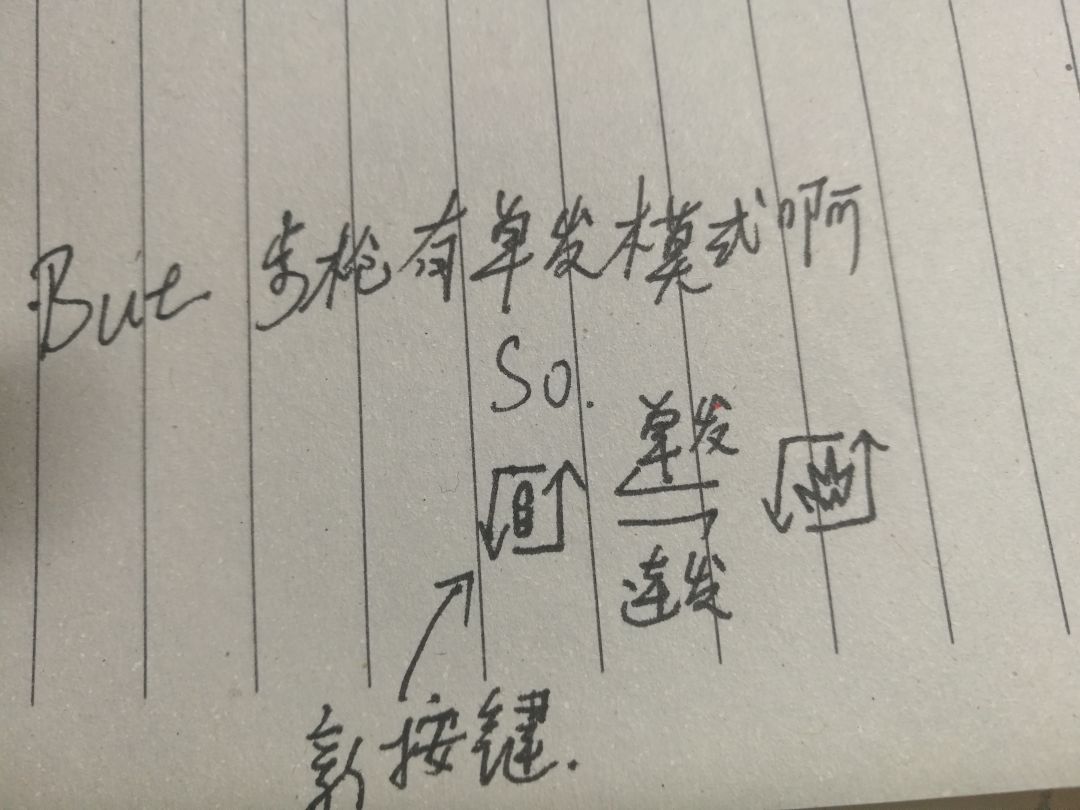 But 步枪有单发模式啊
So.
单发
连发
新按键.